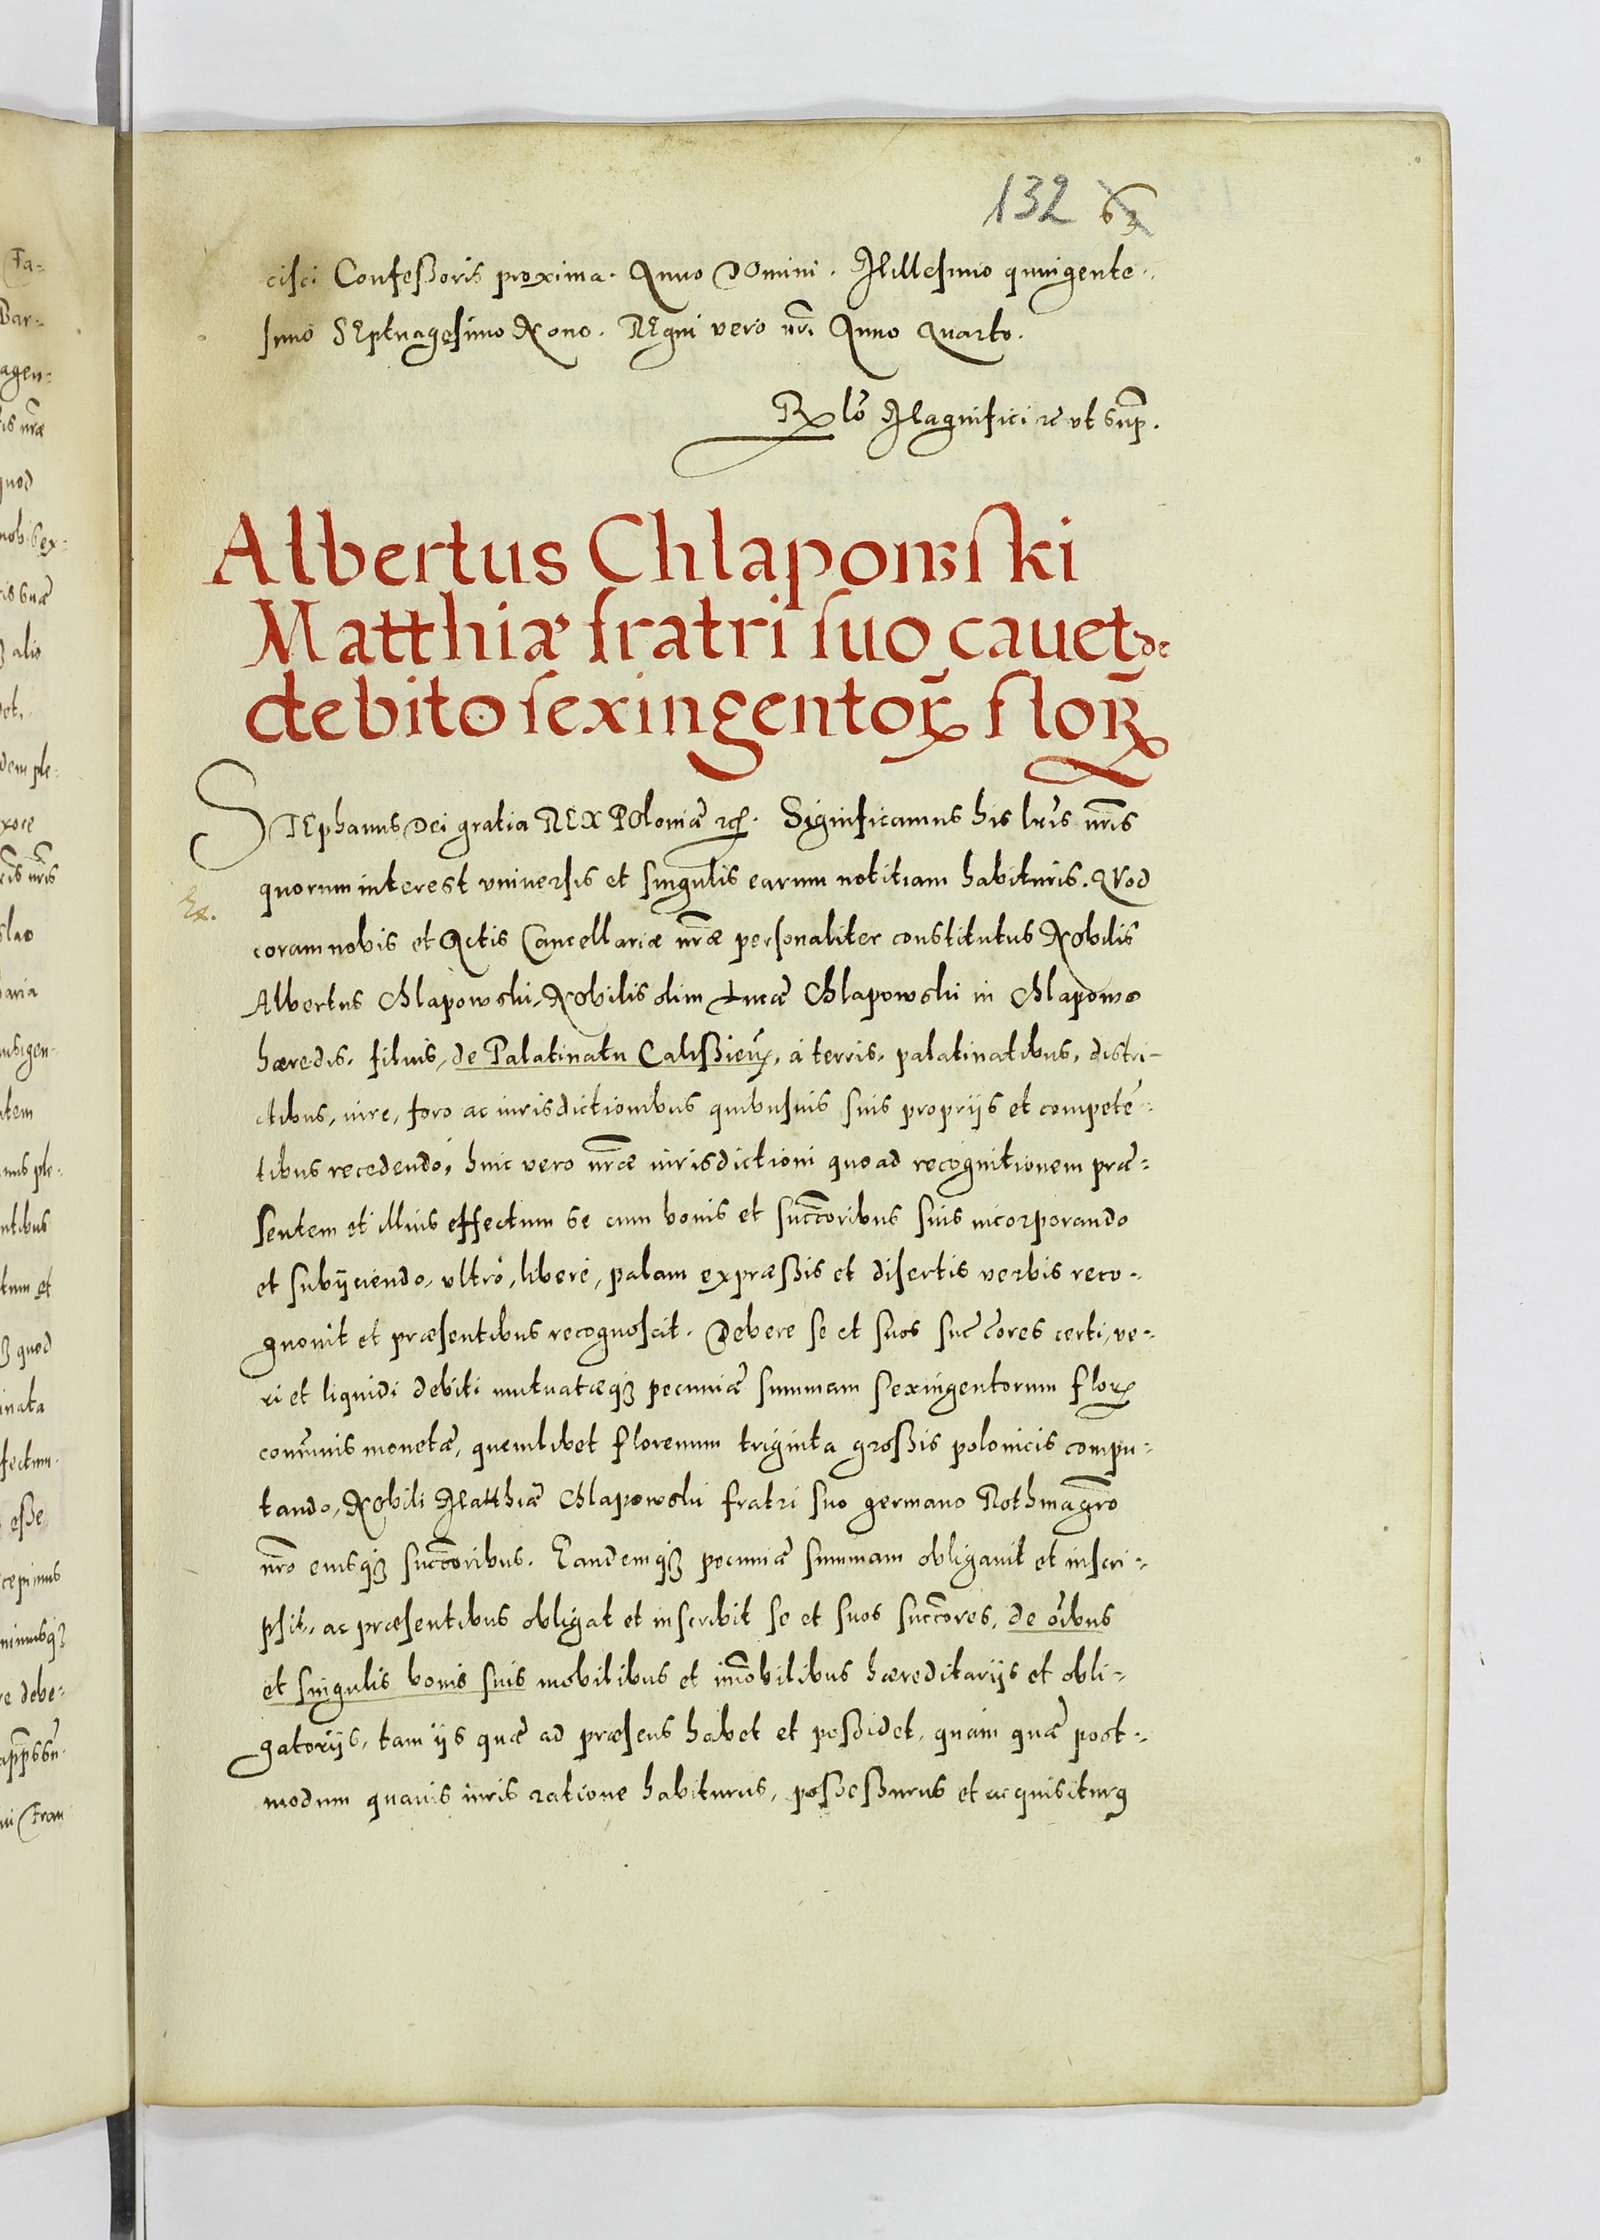 132 63
cisci Confeßoris proxima. Anno DOmini. Millesimo quingente=
simo SEptuagesimo Nono. REgni vero nr̃i Anno Quarto.
Rx̃ lõ Magnifici rc̃ vt sup̃.
Albertus Chlapowski
Matthiæ fratri suo cauet de
debito sexingentoꝝ floꝝ
STEphanus Dei gratia REX POloniæ rcꝭ. Significamus his lr̃is nr̃is
quorum interest vniuersis et singulis earum notitiam habituris. QVod
Ex.
coram nobis et Actis Cancellariæ nr̃æ personaliter constitutus NObilis
Albertus Chlapowski, NObilis olim Lucæ Chlapowski in Chlapowo
hæredis, filius, de Palatinatu Calißieñ, á terris, palatinatibus, distri=
ctibus, iure, foro ac iurisdictionibus quibusuis suis proprijs et competẽ=
tibus recedendo, huic vero nr̃æ iurisdictioni quoad recognitionem præ=
sentem et illius effectum se cum bonis et succ̃oribus suis incorporando
et subijciendo, vltró, liberé, palam expræßis et disertis verbis reco=
gnouit et præsentibus recognoscit. Debere se et suos succ̃ores certi, ve=
ri et liquidi debiti mutuatæqꝫ pecuniæ summam sexingentorum floꝝ
com̃unis monetæ, quemlibet florenum triginta großis polonicis compu=
tando, NObili Matthiæ Chlapowski fratri suo germano Rothmagr̃o
nr̃o eiusqꝫ succ̃oribus. Eandemqꝫ pecuniæ summam obligauit et inscri=
psit, ac præsentibus obligat et inscribit se et suos succ̃ores, de oĩbus
et singulis bonis suis mobilibus et im̃obilibus hæreditarijs et obli=
gatorijs, tam ijs quæ ad præsens habet et poßidet, quàm quæ post=
modum quauis iuris ratione habiturus, poßeßurus et acquisiturꝯ